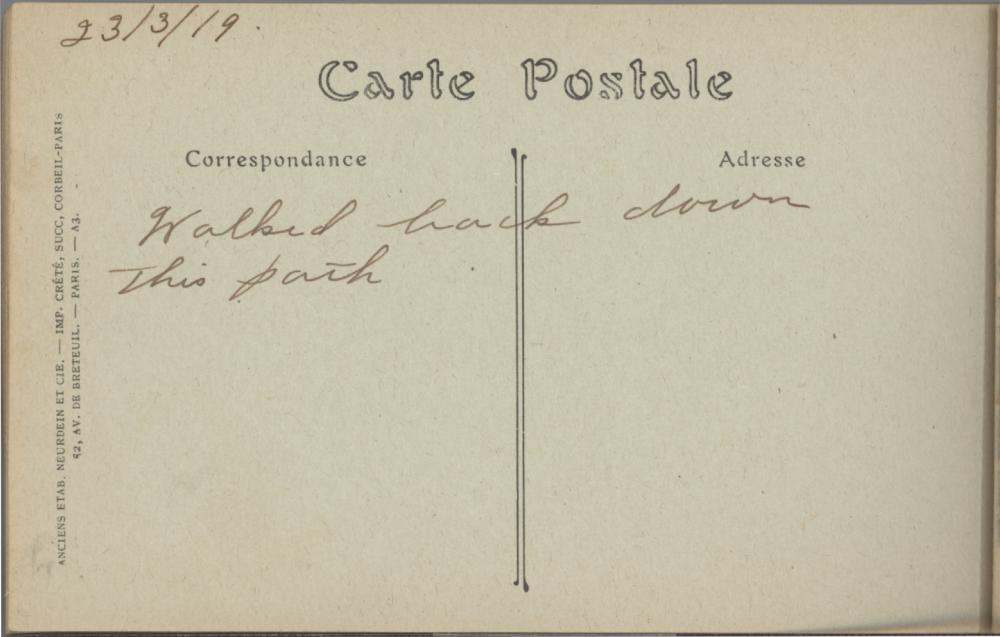 23/3/19.
Carte Postale
Correspondance
Adresse
Walked back down
This path
ANCIENS ETAB. NEURDEIN ET CIE. — IMP. CRÉTÉ, SUCC, CORBEIL-PARIS
52, AV. DE BRETEUIL. — PARIS. — A3.